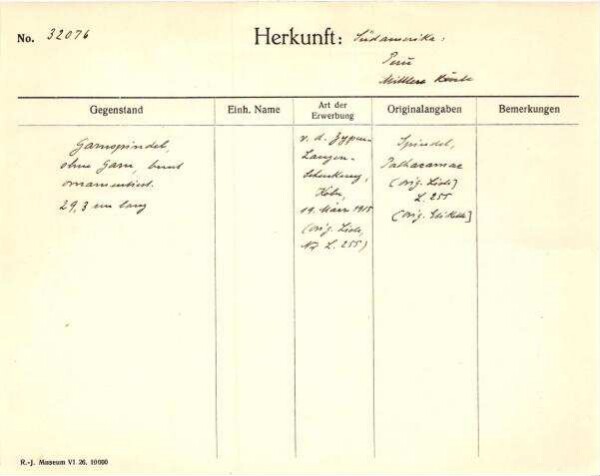 No. 32076
Herkunft: Südamerika:
Peru
Mittlere Küste
Gegenstand
Einh. Name
Art der
Erwerbung
Originalangaben
Bemerkungen
Garnspindel,
ohne Garn, bunt
ornamentiert.
29,3 cm lang
v. d. Zypen-
Langen-
Schenkung,
Köln,
19. März 1915
(orig. Liste,
No L. 255)
Spindel,
Pachacamac
(orig. Liste]
L. 255
(orig. Etikette]
R.-J. Museum VI 26. 10000